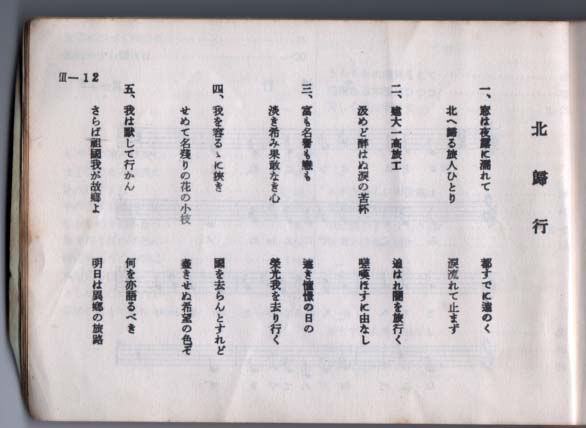 北歸行
一、窓は夜露に濡れて　都すでに遠のく
北へ歸る旅人ひとり　涙流れて止まず
二、建大一高旅工　追はれ闇を旅行く
汲めど醉はぬ涙の苦杯　嗟嘆ほすに由なし
三、富も名譽も戀も　遠き憧憬の日の
淡き希み果敢なき心　榮光我を去り行く
四、我を容るゝに狹き　國を去らんとすれど
せめて名殘りの花の小枝　盡きせぬ希望の色ぞ
五、我は默して行かん　何を亦語るべき
さらば祖國我が故郷よ　明日は異郷の旅路
Ⅲ—12